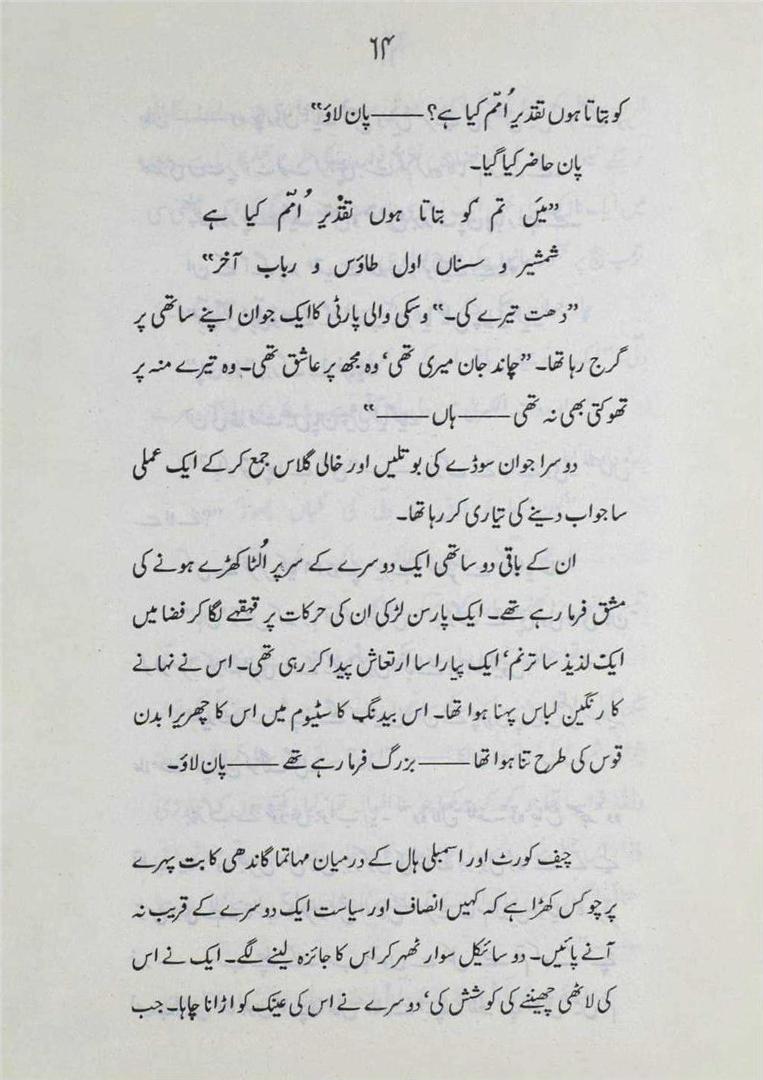 ۶۴
کو بتاتا ہوں تقدیرِ اُمم کیا ہے؟ ——— پان لاؤ"
پان حاضر کیا گیا۔
"میَں تم کو بتاتا ہوں تقدْیرِ اُمم کیا ہے
شمشیر و سناں اول طاؤس و رباب آخر"
"دھت تیرے کی۔" وسکی والی پارٹی کا ایک جوان اپنے ساتھی پر
گرج رہا تھا۔ "چاند جان میری تھی' وہ مجھ پر عاشق تھی۔ وہ تیرے منہ پر
تھوکتی بھی نہ تھی ——— ہاں ———"
دوسرا جوان سوڈے کی بوتلیں اور خالی گلاس جمع کر کے ایک عملی
سا جواب دینے کی تیاری کر رہا تھا۔
ان کے باقی دو ساتھی ایک دوسرے کے سر پر اُلٹا کھڑے ہونے کی
مشق فرما رہے تھے۔ ایک پارسن لڑکی ان کی حرکات پر قہقہے لگا کر فضا میں
ایک لذیذ سا ترنم' ایک پیارا سا ارتعاش پیدا کر رہی تھی۔ اس نے نہانے
کا رنگین لباس پہنا ہوا تھا۔ اس بیدنگ کاسٹیوم میں اس کا چھریرا بدن
قوس کی طرح تنا ہوا تھا ——— بزرگ فرما رہے تھے ——— پان لاؤ۔
چیف کورٹ اور اسمبلی ہال کے درمیان مہاتما گاندھی کا بت پہرے
پر چوکس کھڑا ہے کہ کہیں انصاف اور سیاست ایک دوسرے کے قریب نہ
آنے پائیں۔ دو سائیکل سوار ٹھہر کر اس کا جائزہ لینے لگے۔ ایک نے اس
کی لاٹھی چھیننے کی کوشش کی' دوسرے نے اس کی عینک کو اڑانا چاہا۔ جب